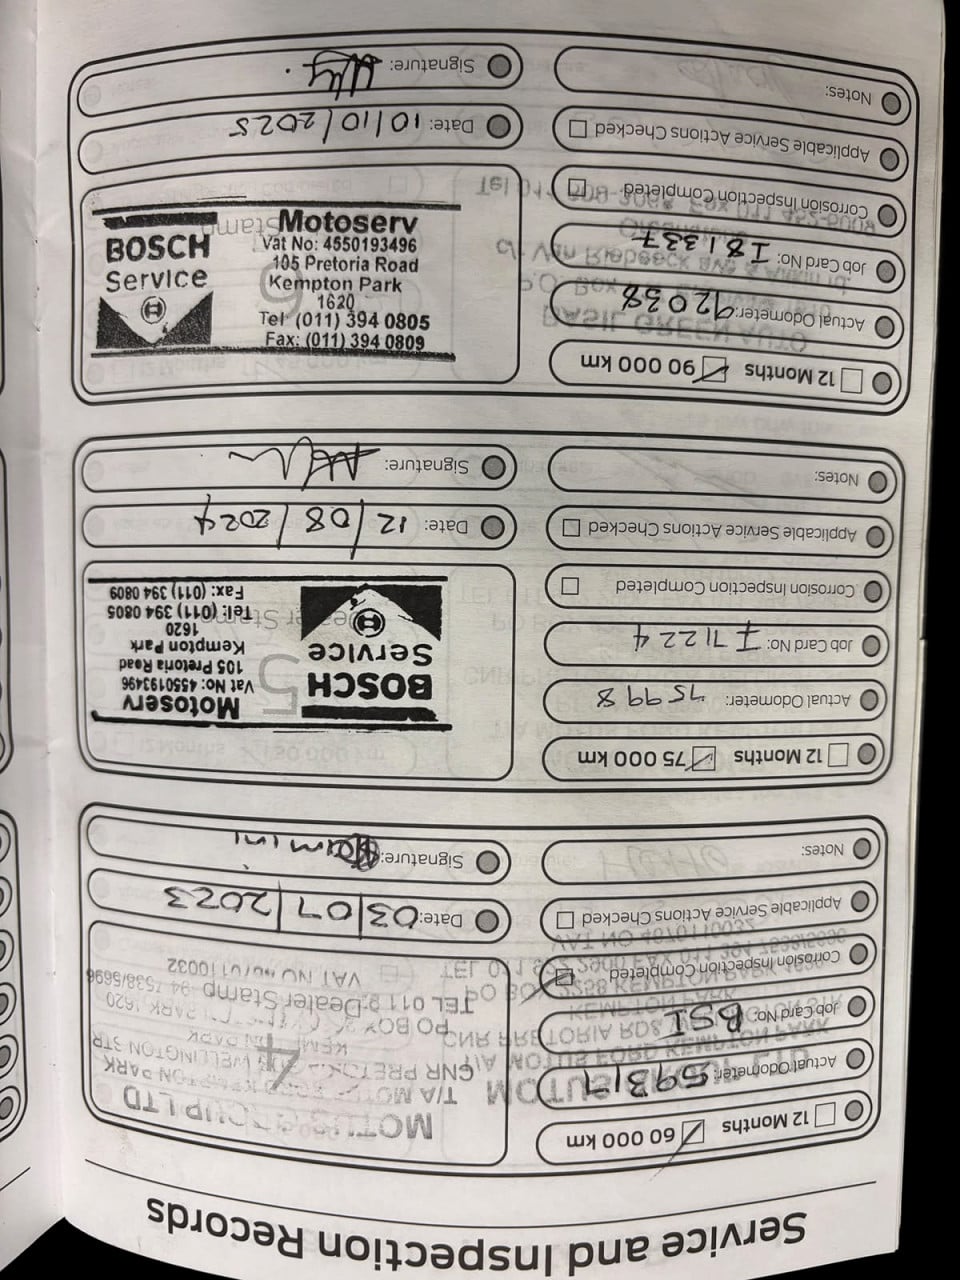 Service and Inspection Records
12 Months 60 000 km
Actual Odometer: 59317
Job Card No: BSI
Corrosion Inspection Completed
Applicable Service Actions Checked
Notes:
MOTUS GROUP LTD
KEMPTON PARK
Dealer Stamp
4
Date: 03/07/2023
Signature:
12 Months 75 000 km
Actual Odometer: 75998
Job Card No: I71224
Corrosion Inspection Completed
Applicable Service Actions Checked
Notes:
BOSCH
Service
Motoserv
Vat No: 4550193496
105 Pretoria Road
Kempton Park
1620
Tel: (011) 394 0805
Fax: (011) 394 0809
Dealer Stamp
5
Date: 12/08/2024
Signature:
12 Months 90 000 km
Actual Odometer: 92038
Job Card No: I81337
Corrosion Inspection Completed
Applicable Service Actions Checked
Notes:
BOSCH
Service
Motoserv
Vat No: 4550193496
105 Pretoria Road
Kempton Park
1620
Tel: (011) 394 0805
Fax: (011) 394 0809
Stamp
6
Date: 10/10/2025
Signature: